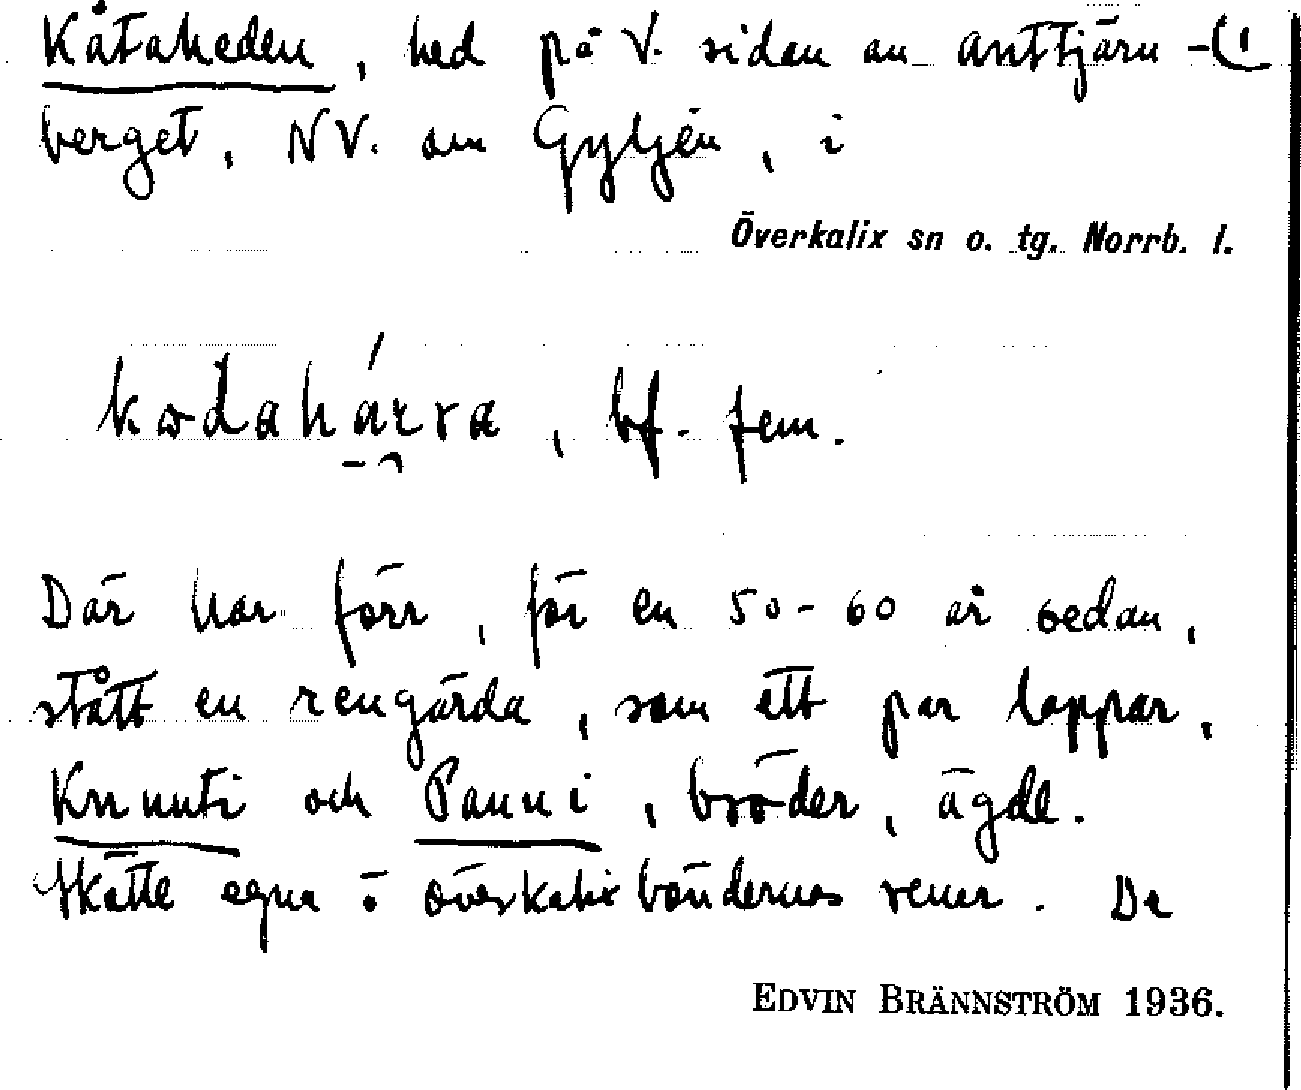 Kåtaheden, hed på V. sidan av Anttjärn- (1
berget, NV. om Gyljen, i
Överkalix sn o. tg. Norrb. l.
kodahárra, bf. fem.
Där har förr, för en 50-60 år sedan,
stått en rengärda, som ett par lappar,
Knuuti och Panni, bröder, ägde.
Skötte egna o överkalixböndernas renar. De
EDVIN BRÄNNSTRÖM 1936.